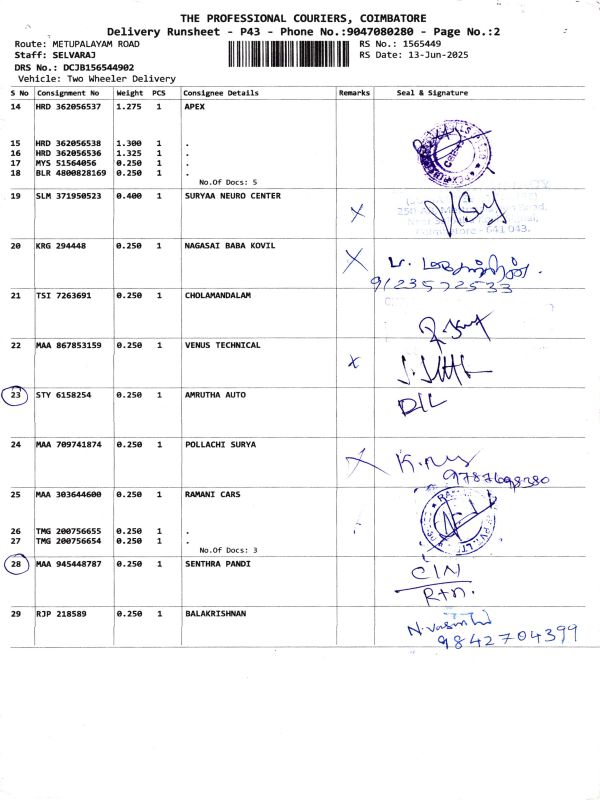 THE PROFESSIONAL COURIERS, COIMBATORE
Delivery Runsheet - P43 - Phone No.:9047080280 - Page No.:2
Route: METUPALAYAM ROAD RS No.: 1565449
Staff: SELVARAJ RS Date: 13-Jun-2025
DRS No.: DCJB156544902
Vehicle: Two Wheeler Delivery
S No Consignment No Weight PCS Consignee Details Remarks Seal & Signature
14 HRD 362056537 1.275 1 APEX
15 HRD 362056538 1.300 1 .
16 HRD 362056536 1.325 1 .
17 MYS 51564056 0.250 1 .
18 BLR 4800828169 0.250 1 .
No.Of Docs: 5
19 SLM 371950523 0.400 1 SURYAA NEURO CENTER X
641 043.
20 KRG 294448 0.250 1 NAGASAI BABA KOVIL X
9123572533
21 TSI 7263691 0.250 1 CHOLAMANDALAM
22 MAA 867853159 0.250 1 VENUS TECHNICAL x
23 STY 6158254 0.250 1 AMRUTHA AUTO D/L
24 MAA 709741874 0.250 1 POLLACHI SURYA X
9787698380
25 MAA 303644600 0.250 1 RAMANI CARS
26 TMG 200756655 0.250 1 .
27 TMG 200756654 0.250 1 .
No.Of Docs: 3
28 MAA 945448787 0.250 1 SENTHRA PANDI CIN
Rtn.
29 RJP 218589 0.250 1 BALAKRISHNAN
9842704399